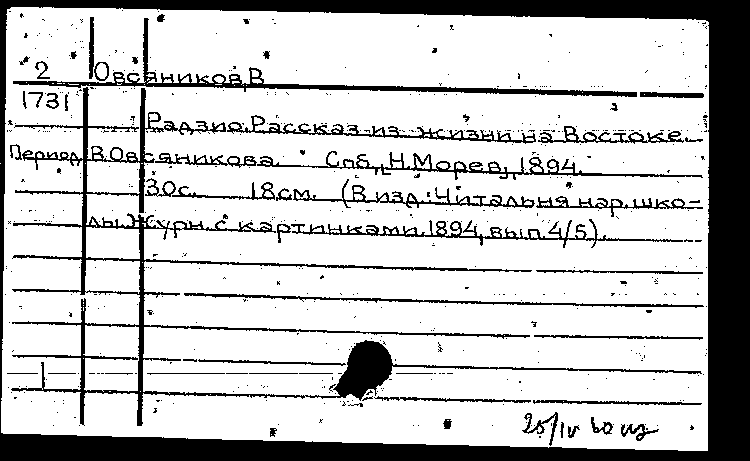 2 Овсяников,В
1731
Радзио.Рассказ из жизни на Востоке.
Период В.Овсяникова. Спб.,Н.Морев, 1894.
30с. 18см. (В изд.:Читальня нар.шко-
лы.Журн.с картинками.1894,вып.4/5).
1
25/IV